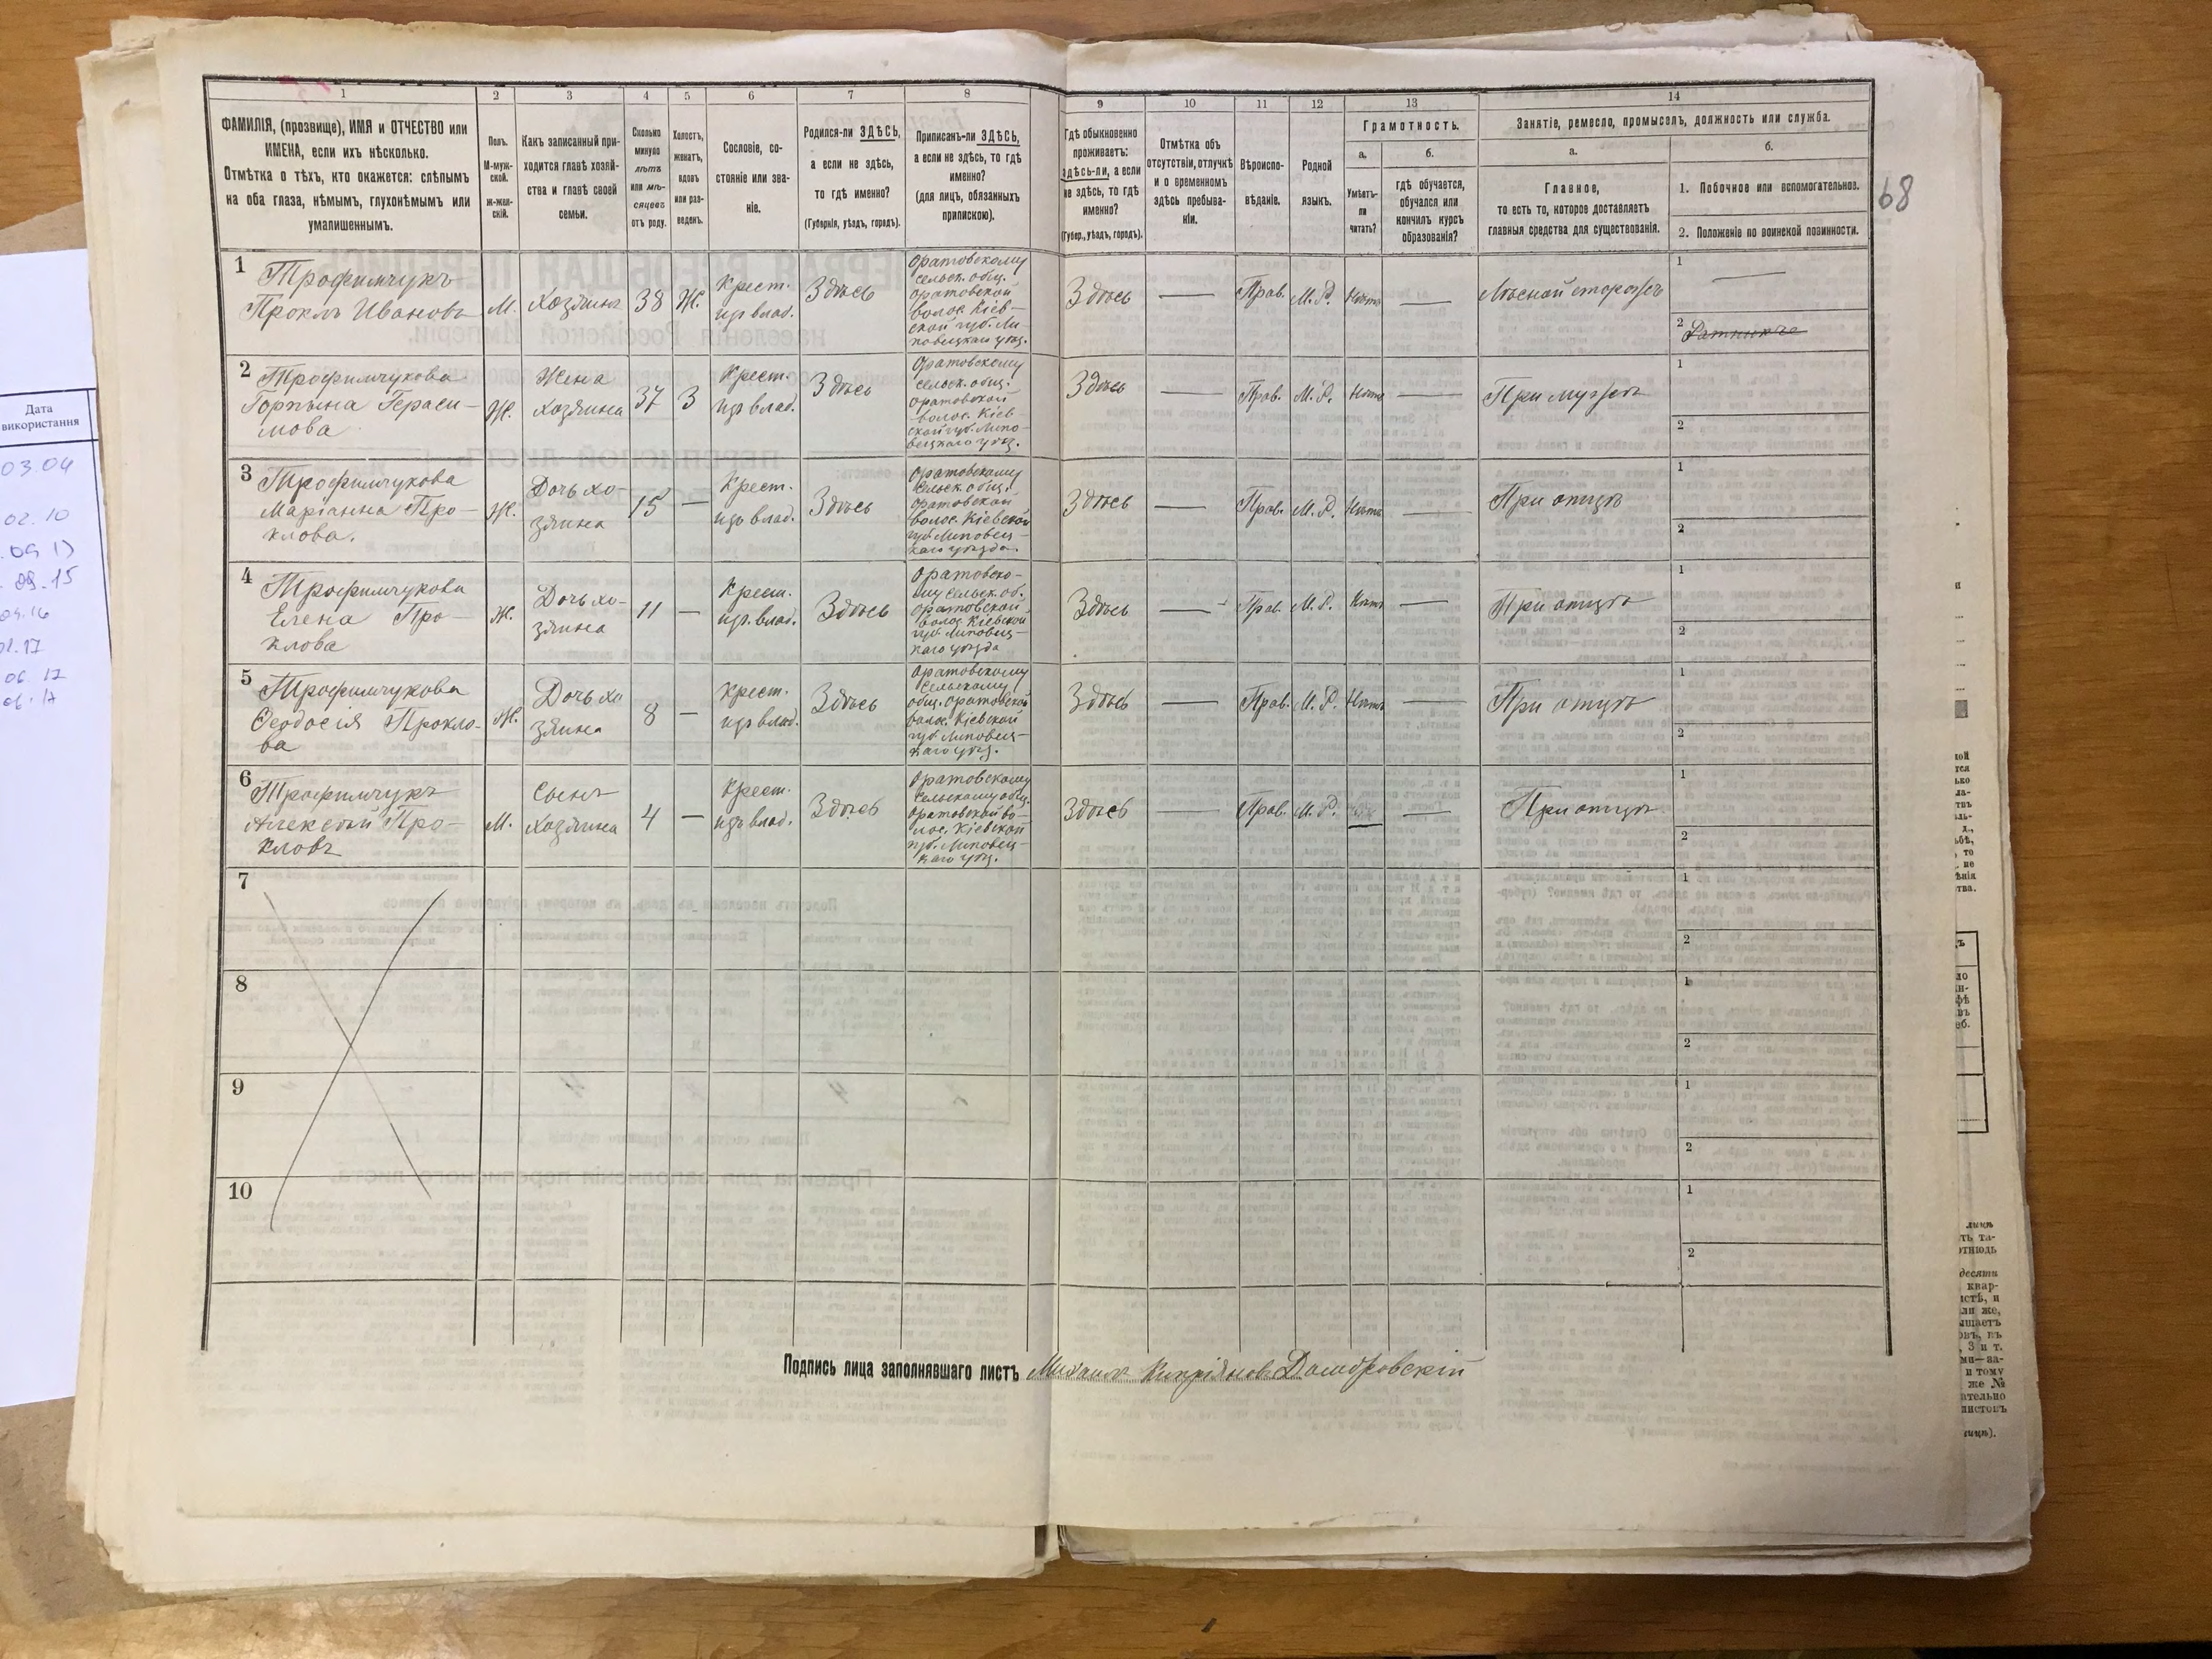 68
1 2 3 4 5 6 7 8 9 10 11 12 13 14
ФАМИЛІЯ, (прозвище), ИМЯ и ОТЧЕСТВО или
ИМЕНА, если ихъ нѣсколько.
Отмѣтка о тѣхъ, кто окажется: слѣпымъ
на оба глаза, нѣмымъ, глухонѣмымъ или
умалишеннымъ.
Полъ.
М-муж-
ской.
Ж-жен-
скій.
Какъ записанный при-
ходится главѣ хозяй-
ства и главѣ своей
семьи.
Сколько
минуло
лѣтъ
или мѣ-
сяцевъ
отъ роду.
Холостъ,
женатъ,
вдовъ
или раз-
веденъ.
Сословіе, со-
стояніе или зва-
ніе.
Родился-ли ЗДѢСЬ,
а если не здѣсь,
то гдѣ именно?
(Губернія, уѣздъ, городъ).
Приписанъ-ли ЗДѢСЬ,
а если не здѣсь, то гдѣ
именно?
(для лицъ, обязанныхъ
припискою).
Гдѣ обыкновенно
проживаетъ:
здѣсь-ли, а если
не здѣсь, то гдѣ
именно?
(Губер., уѣздъ, городъ).
Отмѣтка объ
отсутствіи, отлучкѣ
и о временномъ
здѣсь пребыва-
ніи.
Вѣроиспо-
вѣданіе.
Родной
языкъ.
Грамотность.
а.
Умѣетъ-
ли
читать?
б.
гдѣ обучается,
обучался или
кончилъ курсъ
образованія?
Занятіе, ремесло, промыселъ, должность или служба.
а.
Главное,
то есть то, которое доставляетъ
главныя средства для существованія.
б.
1. Побочное или вспомогательное.
2. Положеніе по воинской повинности.
1 Трофимчукъ
Проклъ Ивановъ
М.
Хозяинъ
38
Ж.
Крест.
изъ влад.
Здѣсь
Оратовскому
сельск. общ.
Оратовской
волос. Кіев-
ской губ. Ли-
повецкаго уѣзд.
Здѣсь
—
Прав.
М. Р.
Нѣтъ
—
Лѣсной сторожъ
1 —
2 Ратникъ
2 Трофимчукова
Горпына Гераси-
мова
Ж.
Жена
хозяина
37
З
Крест.
изъ влад.
Здѣсь
Оратовскому
сельск. общ.
Оратовской
волос. Кіев-
ской губ. Липо-
вецкаго уѣзд.
Здѣсь
—
Прав.
М. Р.
Нѣтъ
—
При мужѣ
1
2
3 Трофимчукова
Маріанна Про-
клова.
Ж.
Дочь хо-
зяина
15
—
Крест.
изъ влад.
Здѣсь
Оратовскому
сельск. общ.
Оратовской
волос. Кіевской
губ. Липовец-
каго уѣзда.
Здѣсь
—
Прав.
М. Р.
Нѣтъ
—
При отцѣ
1
2
4 Трофимчукова
Елена Про-
клова
Ж.
Дочь хо-
зяина
11
—
Крест.
изъ влад.
Здѣсь
Оратовско-
му сельск. об.
Оратовской
волос. Кіевской
губ. Липовец-
каго уѣзда
Здѣсь
—
Прав.
М. Р.
Нѣтъ
—
При отцѣ
1
2
5 Трофимчукова
Ѳеодосія Прокло-
ва
Ж.
Дочь хо
зяина
8
—
Крест.
изъ влад.
Здѣсь
Оратовскому
сельскому
общ. Оратовской
волос. Кіевской
губ. Липовец-
каго уѣзд.
Здѣсь
—
Прав.
М. Р.
Нѣтъ
—
При отцѣ
1
2
6 Трофимчукъ
Алексѣй Про-
кловъ
М.
Сынъ
хозяина
4
—
Крест.
изъ влад.
Здѣсь
Оратовскому
сельскому общ.
Оратовской во-
лос. Кіевской
губ. Липовец-
каго уѣзд.
Здѣсь
—
Прав.
М. Р.
—
При отцѣ
1
2
7
1
2
8
1
2
9
1
2
10
1
2
Подпись лица заполнявшаго листъ Михаилъ Кипріяновъ Домбровскій
Дата
використання
03.04
02.10